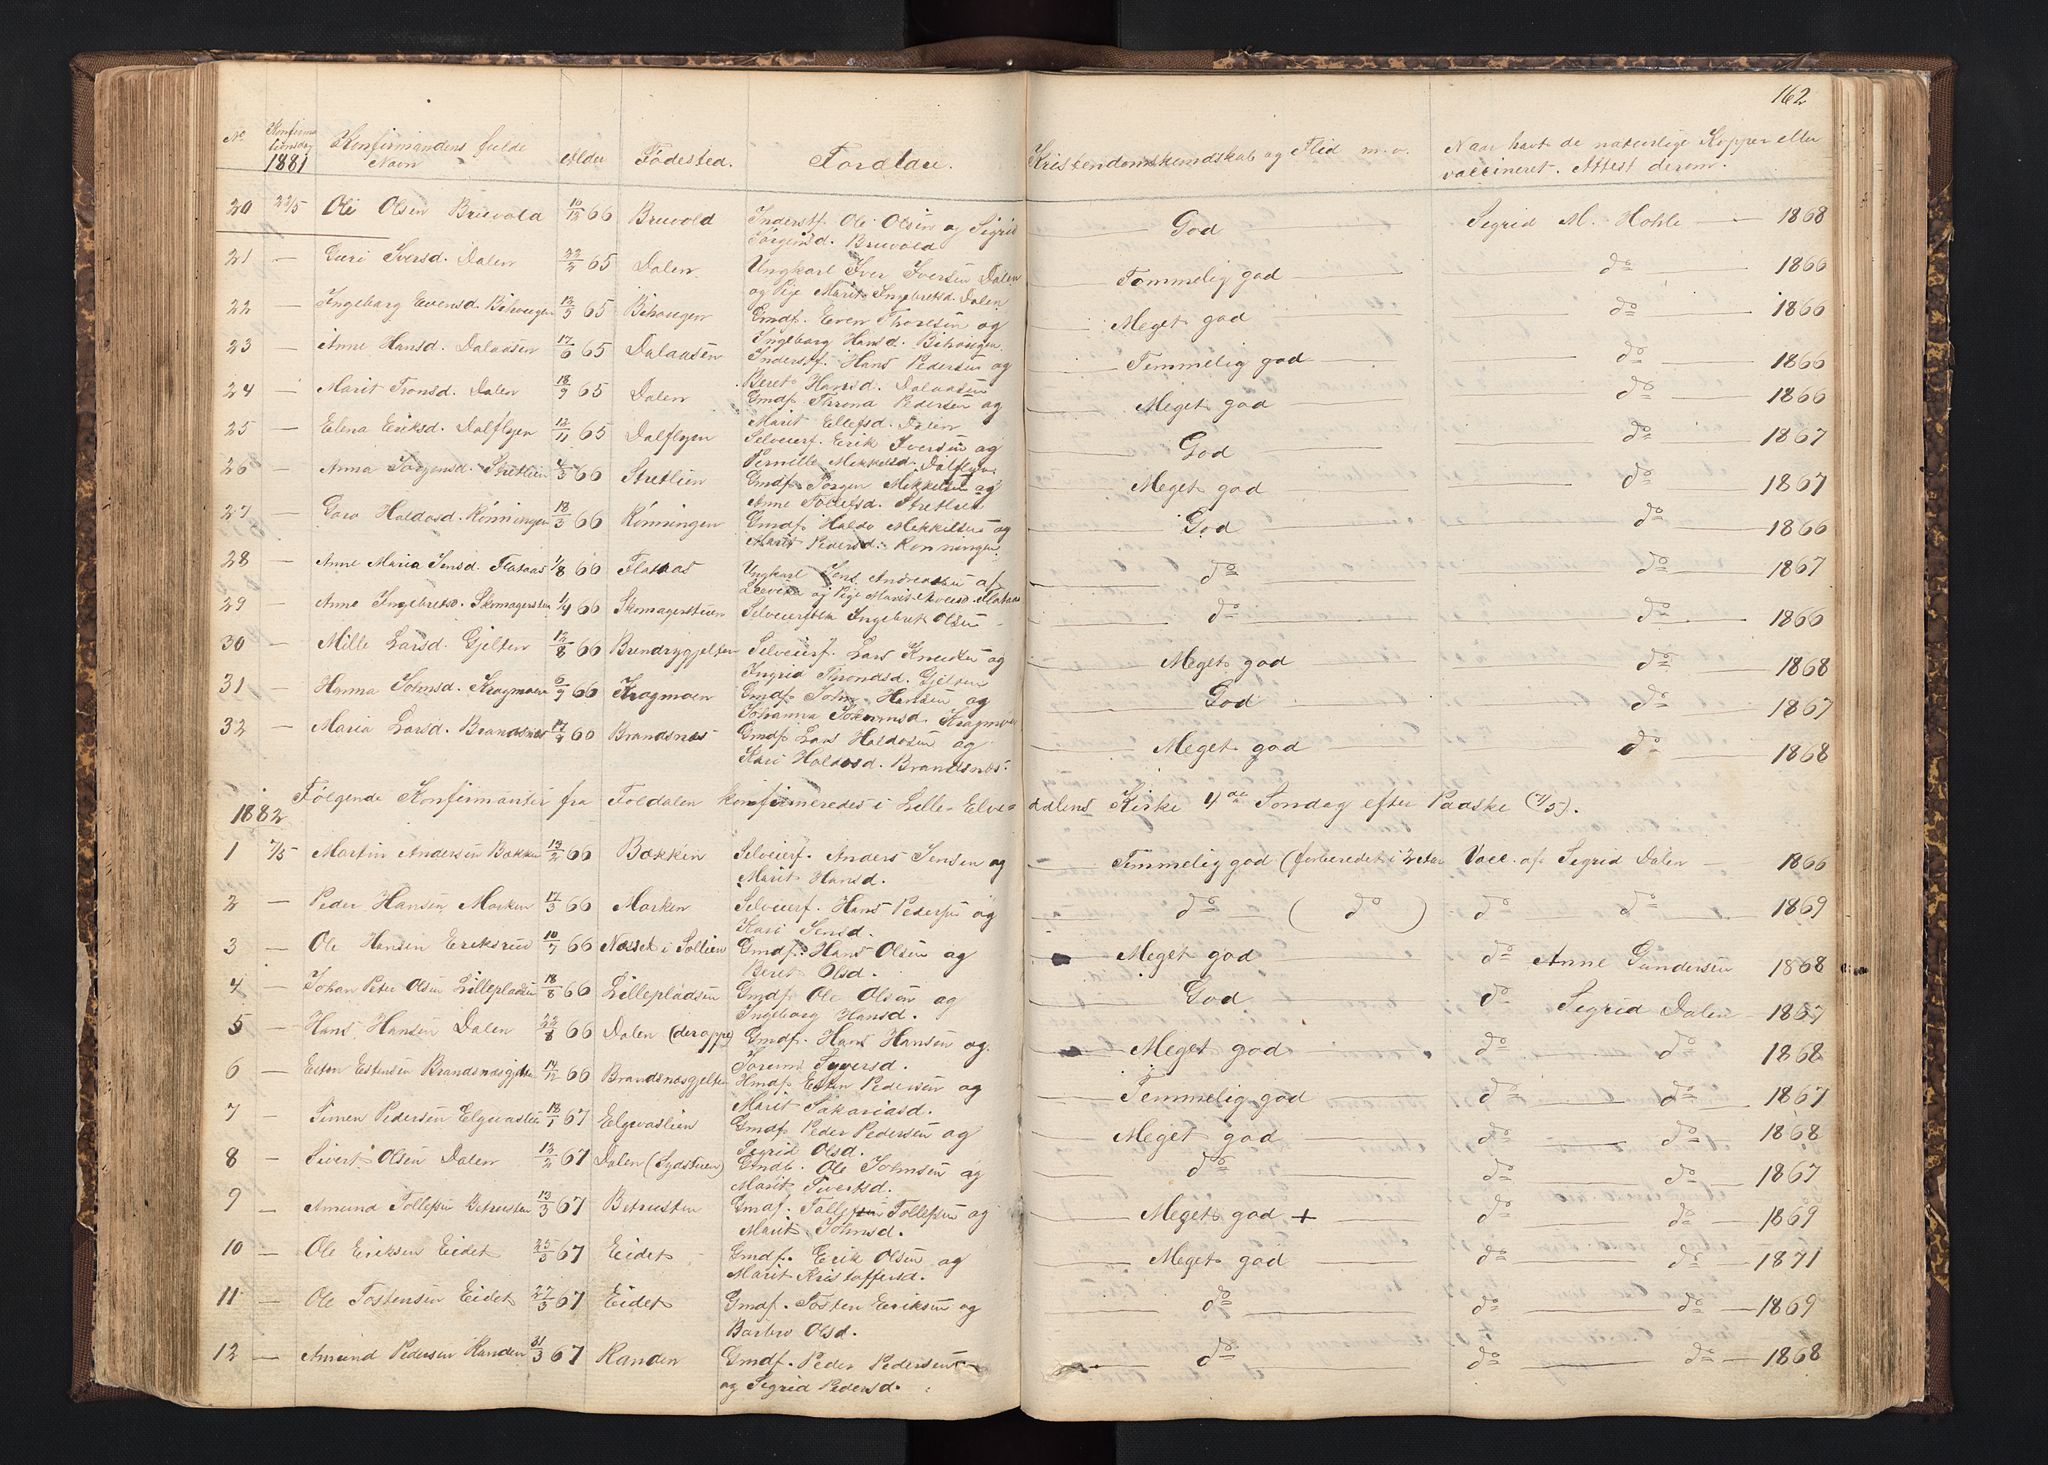 162
No Konfirmationsdag 1881 Konfirmandens fulde Navn Alder Fødested. Forældre. Kristendomskundskab og Flid m.v. Naar havt de naturlige Kopper eller vaccineret. Attest derom.
20 22/5 Ole Olsen Bruvold 10/12 66 Bruvold Inderstf. Ole Olsen og Sigrid God Sigrid M. Hohle 1868
Jørgensd. Bruvold
21 — Guri Iversd. Dalen 22/2 65 Dalen Ungkarl Iver Iversen Dalen Temmelig god do 1866
og Pige Marit Ingebretsd. Dalen
22 — Ingeborg Evensd. Bihaugen 12/5 65 Bihaugen Gmdf. Even Thoresen og Meget god do 1866
Ingeborg Hansd. Bihaugen
23 — Anne Hansd. Dalaasen 17/6 65 Dalaasen Inderstf. Hans Pedersen og Temmelig god do 1866
Beret Hansd. Dalaasen
24 — Marit Tronsd. Dalen 18/9 65 Dalen Gmdf. Thrond Pedersen og Meget god do 1866
Marit Ellefsd. Dalen
25 — Elena Eriksd. Dalflyen 12/11 65 Dalflyen Selveierf. Erik Iversen og God do 1867
Pernille Mikkelsd. Dalflyen
26 — Anna Jørgensd. Stretlien 4/3 66 Stretlien Gmdf. Jørgen Mikkelsen og Meget god do 1867
Anne Tollefsd. Stretlien
27 — Goro Haldosd. Rønningen 18/3 66 Rønningen Gmdf. Haldo Mikkelsen og God do 1866
Marit Pedersd. Rønningen
28 — Anne Maria Jensd. Flataas 1/8 66 Flataas Ungkarl Jens Andreassen af do do 1867
og Pige Marit Flataas
29 — Anne Ingebretsd. Skomagerstuen 1/4 66 Skomagerstuen Selveierfolk Ingebret Olsen do do 1866
30 — Mille Larsd. Gjelten 12/8 66 Brendrygjelten Selveierf. Lars Knudsen og Meget god do 1868
Ingrid Throndsd. Gjelten
31 — Hanna Johnsd. Kragmoen 6/9 66 Kragmoen Gmdf. John Hansen og God do 1867
Johanna Kragmoen
32 — Maria Larsd. Brandsnes 17/2 66 Brandsnes Gmdf. Lars Haldosen og Meget god do 1868
Kari Haldosd. Brandsnes
1882 Følgende Konfirmanter fra Foldalen konfirmeredes i Lille-Elvedalens Kirke 4de Søndag efter Paaske (7/5).
1 7/5 Martin Andersen Bakken 13/2 66 Bakken Selveierf. Anders Jensen og Temmelig god (forberedet i 2 Aar Vacc. af Sigrid Dalen 1866
Marit Hansd.
2 — Peder Hansen Morken 17/3 66 Morken Selveierf. Hans Pedersen og do ( do ) do do 1869
Kari Jensd.
3 — Ole Hansen Eriksrud 10/7 66 Næsset i Sollien Gmdf. Hans Olsen og Meget god do Anne Gundersen 1868
Beret Olsd.
4 — Johan Peter Olsen Lillepladsen 18/8 66 Lillepladsen Gmdf. Ole Olsen og God do Sigrid Dalen 1867
Ingeborg Hansd.
5 — Hans Hansen Dalen 22/8 66 Dalen (der oppe) Gmdf. Hans Hansen og Meget god do do 1868
Syversd.
6 — Esten Estensen Brandsnesgjelten 14/12 66 Brandsnesgjelten Hmdf. Esten Pedersen og Temmelig god do do 1867
Marit Sakariasd.
7 — Simen Pedersen Elgvaslien 18/1 67 Elgvaslien Gmdf. Peder Pedersen og Meget god do do 1868
Sigrid Olsd.
8 — Sivert Olsen Dalen 12/2 67 Dalen (Sydstuen) Gmdb. Ole Johnsen og do do do 1867
Marit Sivertsd.
9 — Amund Tollefsen Betrusten 13/3 67 Betrusten Gmdf. Tollef Tollefsen og Meget god + do do 1869
Marit Johnsd.
10 — Ole Eriksen Eidet 25/3 67 Eidet Gmdf. Erik Olsen og Meget god do do 1871
Marit Kristoffersd.
11 — Ole Tostensen Eidet 27/3 67 Eidet Gmdf. Tosten Eriksen og do do do 1869
Barbro Olsd.
12 — Amund Pedersen Randen 31/3 67 Randen Gmdf. Peder Pedersen do do do 1868
og Sigrid Pedersd.